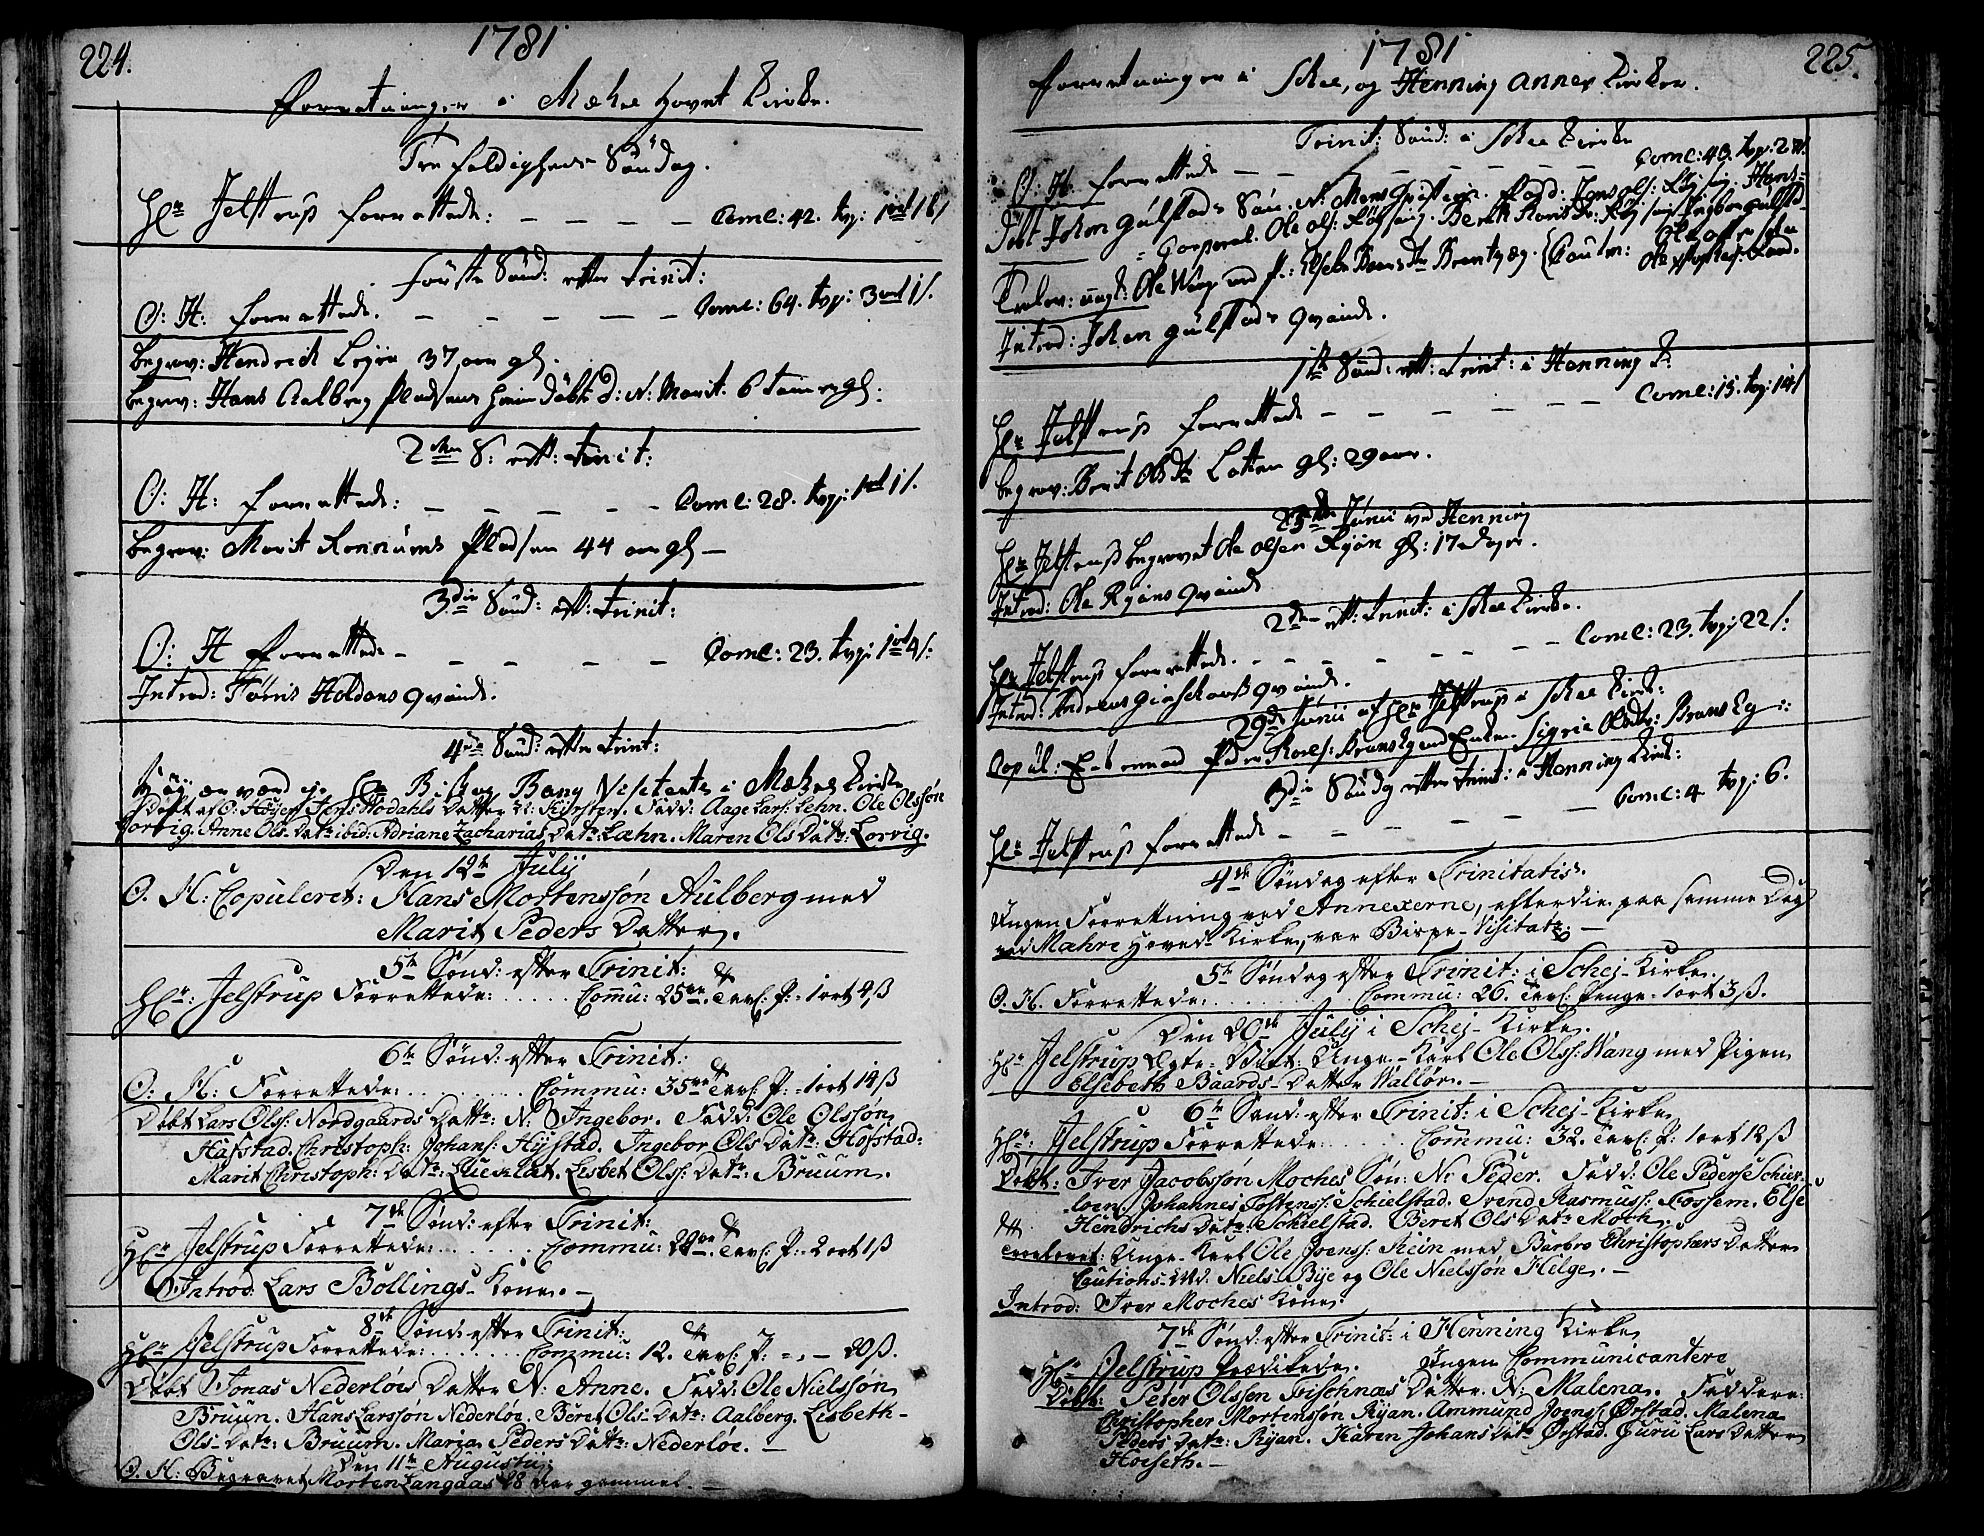 224.
1781
Forretninger i Mæhre Hovet Kirke.
Trefoldigheds Söndag.
Hr Jelstrup forrettede: — — — — Com̄: 42. tvp: 1 ort 16 s
Förste Sönd: efter trinit:
O: H: forrettede. — — — — — Com̄: 64. tvp: 3 ort 1 s.
begrav: Hendrich 37 aar gl.
begrav: Hans Aalberg Pladsens D: N: Marit. 6 gl:
2den S: eft: trinit:
O: H: forrettede: — — — — — Com̄: 28. tvp: 1 ort 1 s.
begrav: Marit Rennums Pladsen 44 aar gl —
3die Sönd: eft: trinit:
O: H forrettede — — — — — Com̄: 23. tvp: 1 ort 4 s:
Introd: Tøris Holdens qvinde.
4de Sönd: efter trinit:
Hr Biskop Bang Visiterte i Mæhre Kirke
Döbt af O: Jens Hodahls Datter N: Kirsten. Fadd: Aage Lars: Lehn. Ole Olssön
Lorvig. Anne Ols Datr: ibid: Adriane Zacharias Datr: Læhn. Maren Ols Datr: Lorvig.
Den 12te Julij
O. H: Copuleret: Hans Mortenssön Aulberg med
Marit Peders Datter.
5te Sönd: efter Trinit:
Hr: Jelstrup Forrettede: . . . . . Com̄u: 25. Tavl: P: - 1 ort 4 ß
6te Sönd: efter Trinit:
O: H: Forrettede: . . . . . . . Commu: 35. Tavl: P: - 1 ort 14 ß
Döbt Lars Olss: Nordgaards Dattr: N: Ingebor. Fadd: Ole Olssön
Hafstad. Christoph: Johans: Hystad. Ingebor Ols Datr: Hofstad:
Marit Christoph: Datr: . Lisbet Olss: Datr: Bruum.
7de Sönd: efter Trinit:
Hr Jelstrup Forrettede: . . . . . . Commu: 22. Tavl: P: - 2 ort 1 ß
Introd. Lars Bollings - Kone. —
8de Sönd: efter Trinit:
Hr Jelstrup Forrettede: . . . . . Commu: 12. Tavl: P: - , — 20 ß.
Döbt Jonas Nederlöes Datter N: Anne. Fadd: Ole Nielssön
Bruun. Hans Larssön Nederlöe. Beret Ols - Datr: Aalberg. Lisbeth -
Ols - Datr: Bruum. Maria Peders Datr: Nederlöe. —
Den 11te Augustii:
O. H: Begravet Morten Langaas 28 Aar gammel. —
225.
1781
Forretninger i Schei, og Henning Annex Kirker.
Trinit: Sönd: i Schei Kirke
O: H: forrettede — — — — — — Com̄: 43. tvp: 2
Döbt Johan Gulstads Sön. N: Mens Fadd: Hans Ols:
Corporal. Ole Ols: Berit
Trolov: ungk: Ole Wang med P.: Elsebe Baards Dr {Cautn: Ole
Introd: Johan Gulstads qvinde.
1ste Sönd: eft: trinit: i Henning K:
Hr Jelstrup forrettede — — — — — Com̄: 15. tvp: 14 s
begrav: Berit Ols Dr Lotten gl: 29 aar.
23de Junii ved Henning
Hr Jelstrup begravet Ole Olsen Ryön gl: 17 dage.
Introd: Ole Ryöns qvinde
2den eft: trinit: i Schei Kirke.
Hr Jelstrup forrettede. — — — — — Com̄: 23. tvp: 22 s.
Introd: Andreas qvinde.
29de Junii af Hr Jelstrup i Schei Kirke:
Copul: Enkemand Peder Enken Sigrie Olsdr:
3die Söndg efter trinit: i Henning Kirk:
Hr Jelstrup forrettede — — — — — Com̄: 4. tvp: 6.
4de Söndag efter Trinitatis.
Ingen Forretning ved Annexerne, efterdie paa samme Dag
ved Mahre Hoved - Kirke, var Bispe - Visitatz: —
5te Söndag efter Trinit: i Schej - Kirke.
O. H. Forrettede: . . . . . . . Commu: 26. Tavl: Penge - 1 ort 3 ß.
Den 20de Julij i Schej - Kirke.
Hr Jelstrup Egte - Viet: Unge - Karl Ole Olss: Wang med Pigen
Elsebeth Baards - Datter Wallöe. —
6te Sönd: efter Trinit: i Schej - Kirke
Hr: Jelstrup Forrettede: . . . . . Commu: 32. Tavl: P: 1 ort 12 ß
Döbt: Iver Jacobssön Moches Sön: N: Peder. Fadd: Ole Peders: Schier-
loen. Johannes Tostens: Schielstad. Svend Rasmuss: Fossem. Else
Hendrichs Datr: Schielstad. Beret Ols Datr Moch.
Trolovet: Unge - Karl Ole Joenss: Rein med Barbro Christophers Datter
Cautions - Md. Niels Bye og Ole Nielssön Helge. —
Introd: Iver Moches Kone
7de Sönd: efter Trinit: i Henning Kirke
Hr Jelstrup Prædikede. Ingen Communicantere
Döbt: Peter Olssen Datter. N: Malena. Faddere:
Christopher Mortenssön Ryan. Ammund Joens: Örstad. Malena
Peders Datr: Ryan. Karen Johans Datr Örstad. Guru Lars Datter
Hoeseth. —